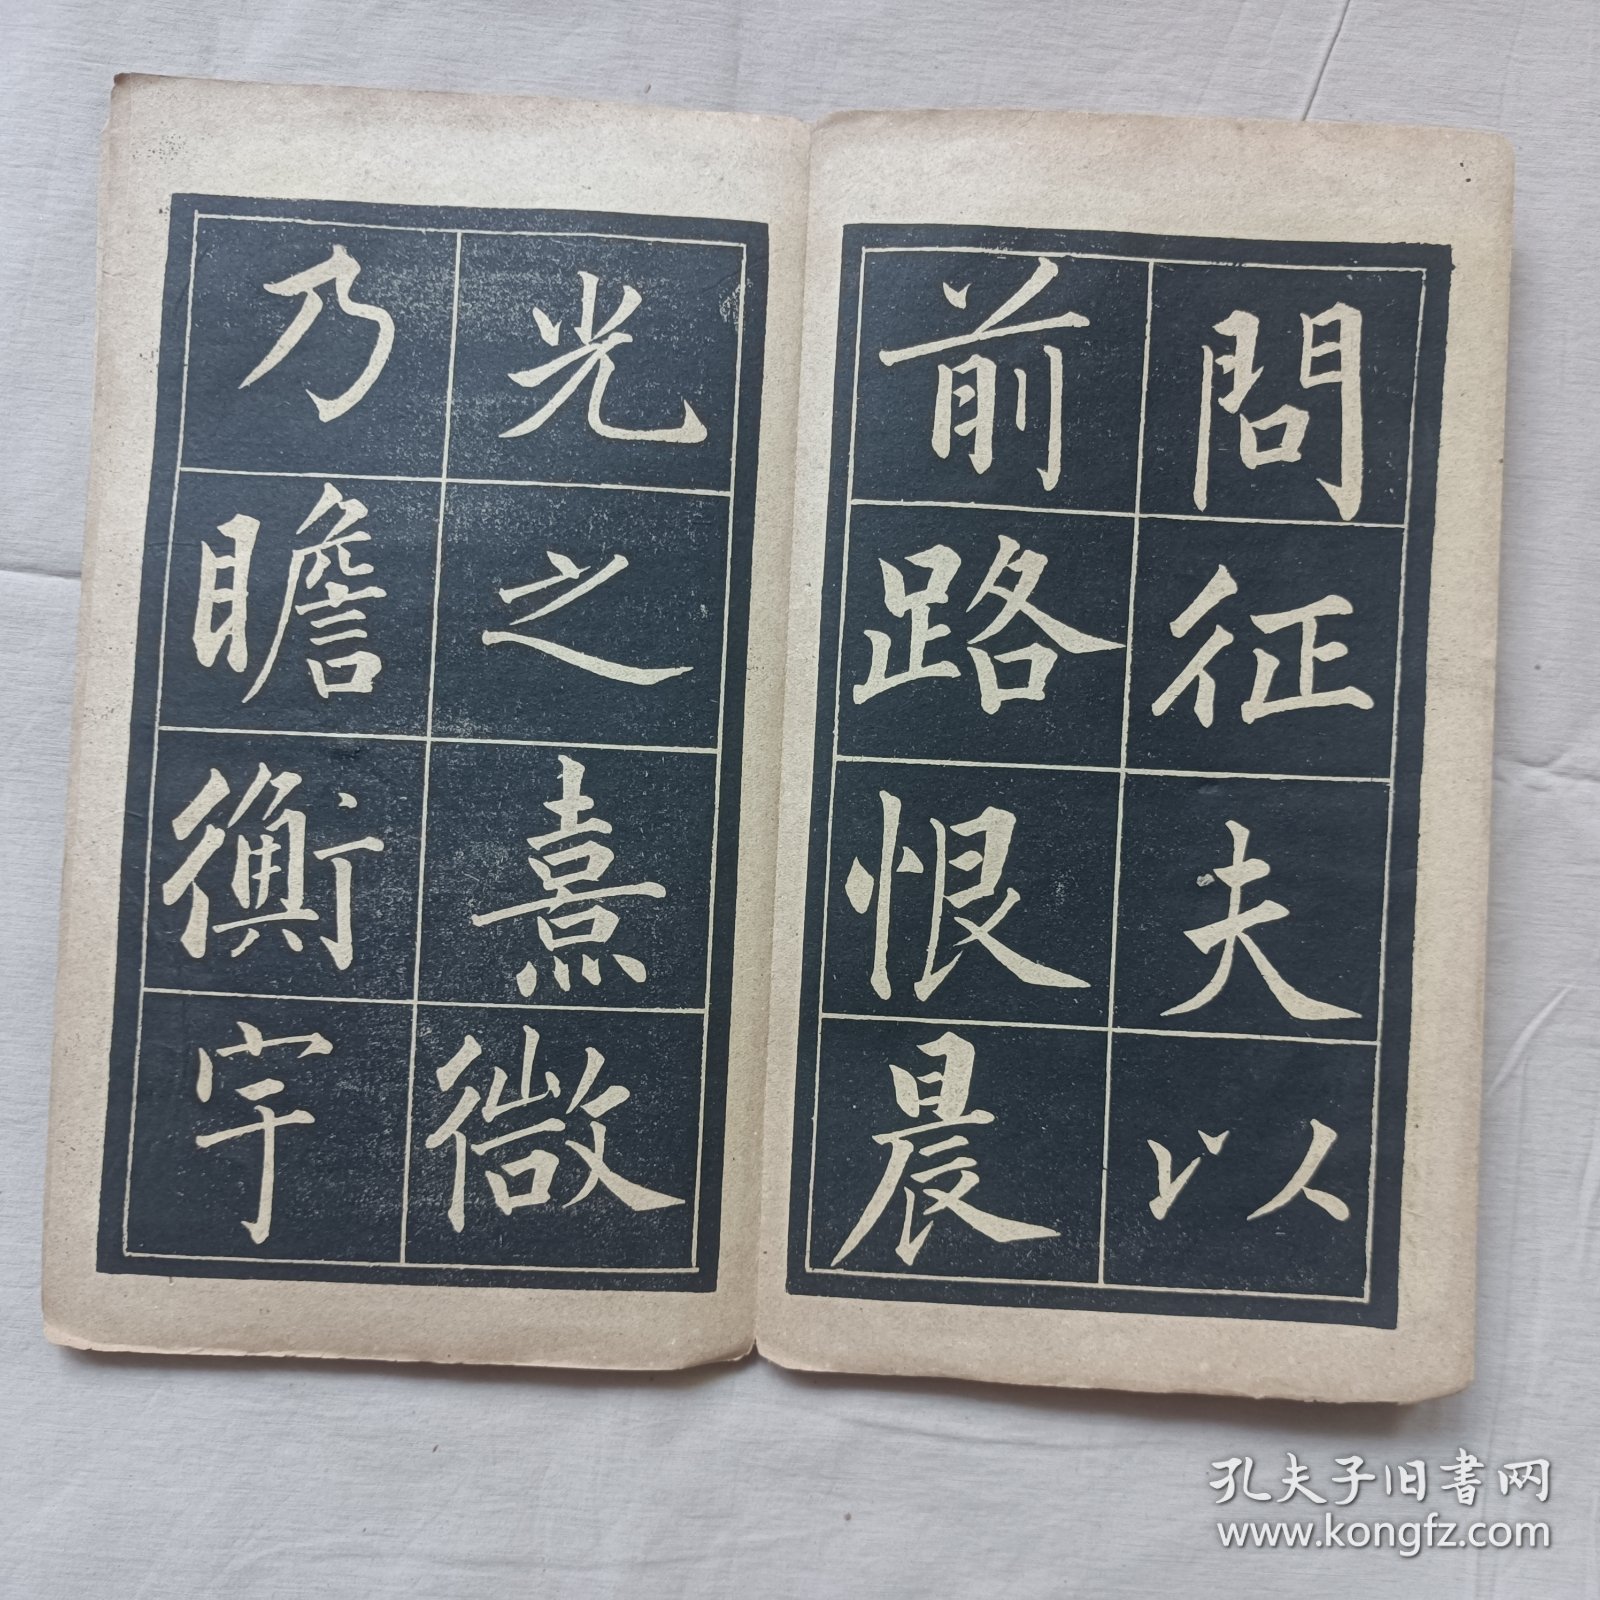 問征夫以
前路恨晨
光之熹微
乃瞻衡宇
孔夫子旧书网
www.kongfz.com